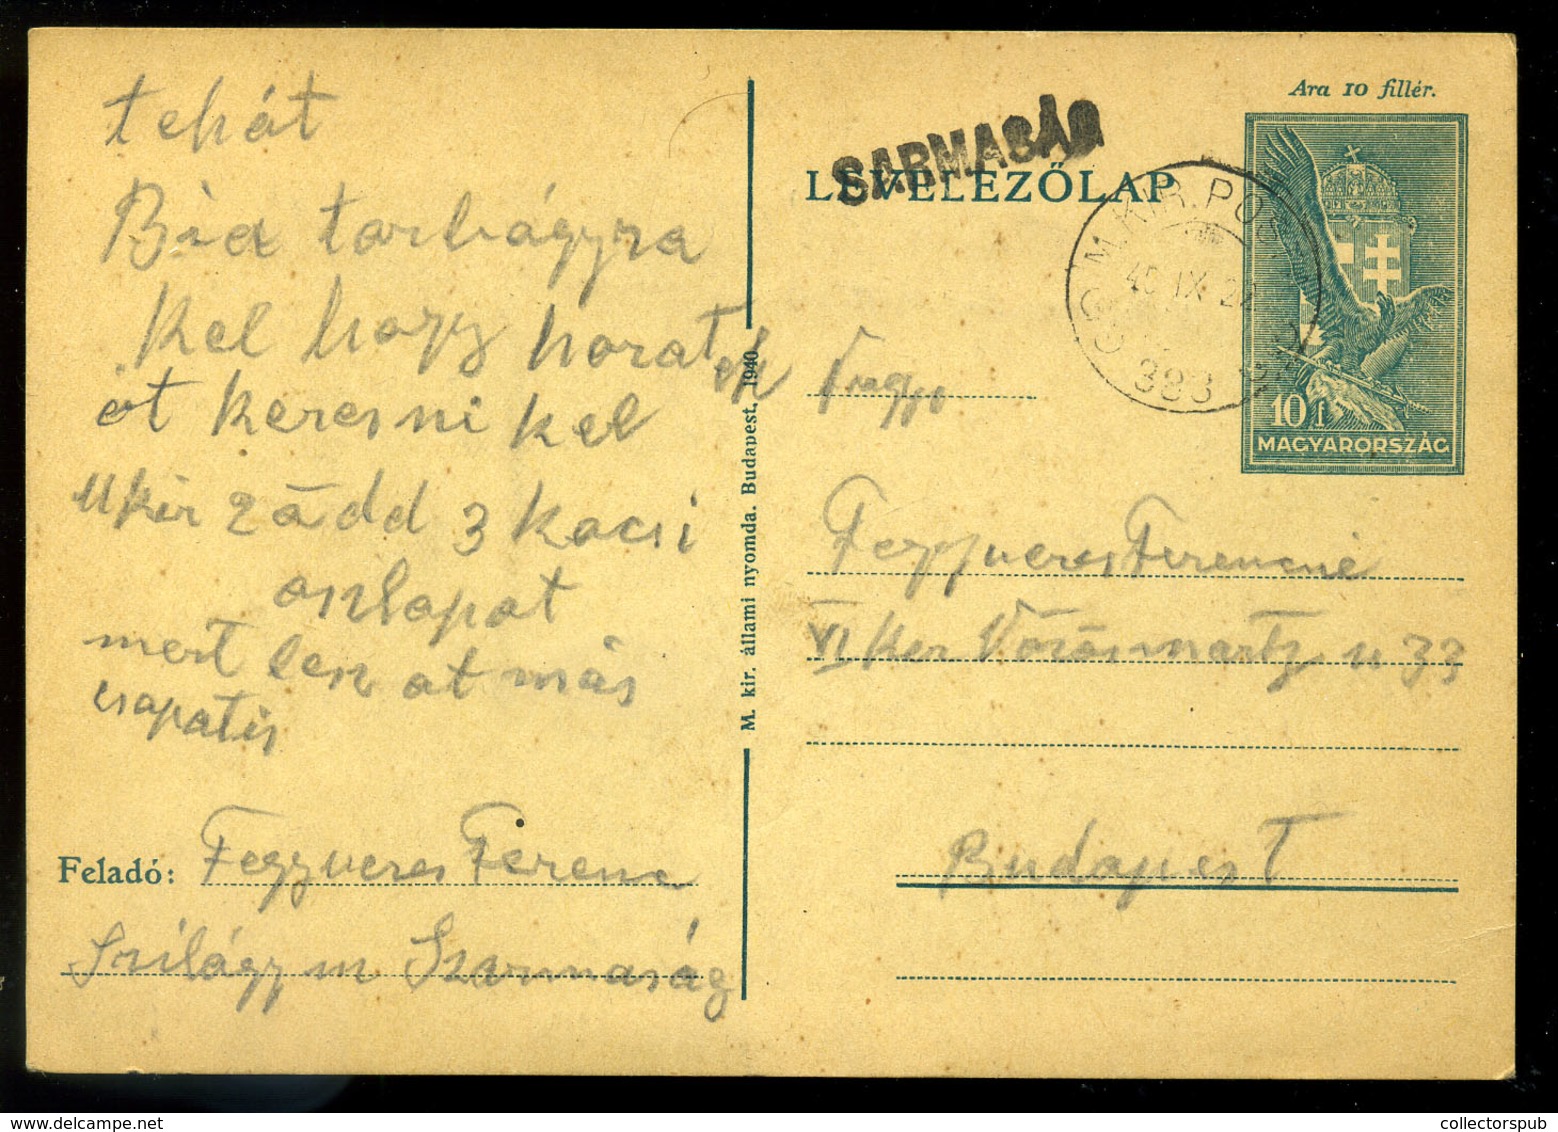 tehát
Bia torbágyra
kel hogy horat
at keresni kel
2 ádd 3 kocsi
aszlapot
mert len at más
csapatis
Feladó: Fegyveres Ferenc
Szilágy m Szarmaság
M. kir. állami nyomda. Budapest, 1940.
SARMASÁG
LEVELEZŐLAP
Ara 10 fillér.
M. KIR. POS
IX 2
383
10 f
MAGYARORSZÁG
Fegyveres Ferencné
VI ker Vörösmartz u 33
Budapest
collectorspub